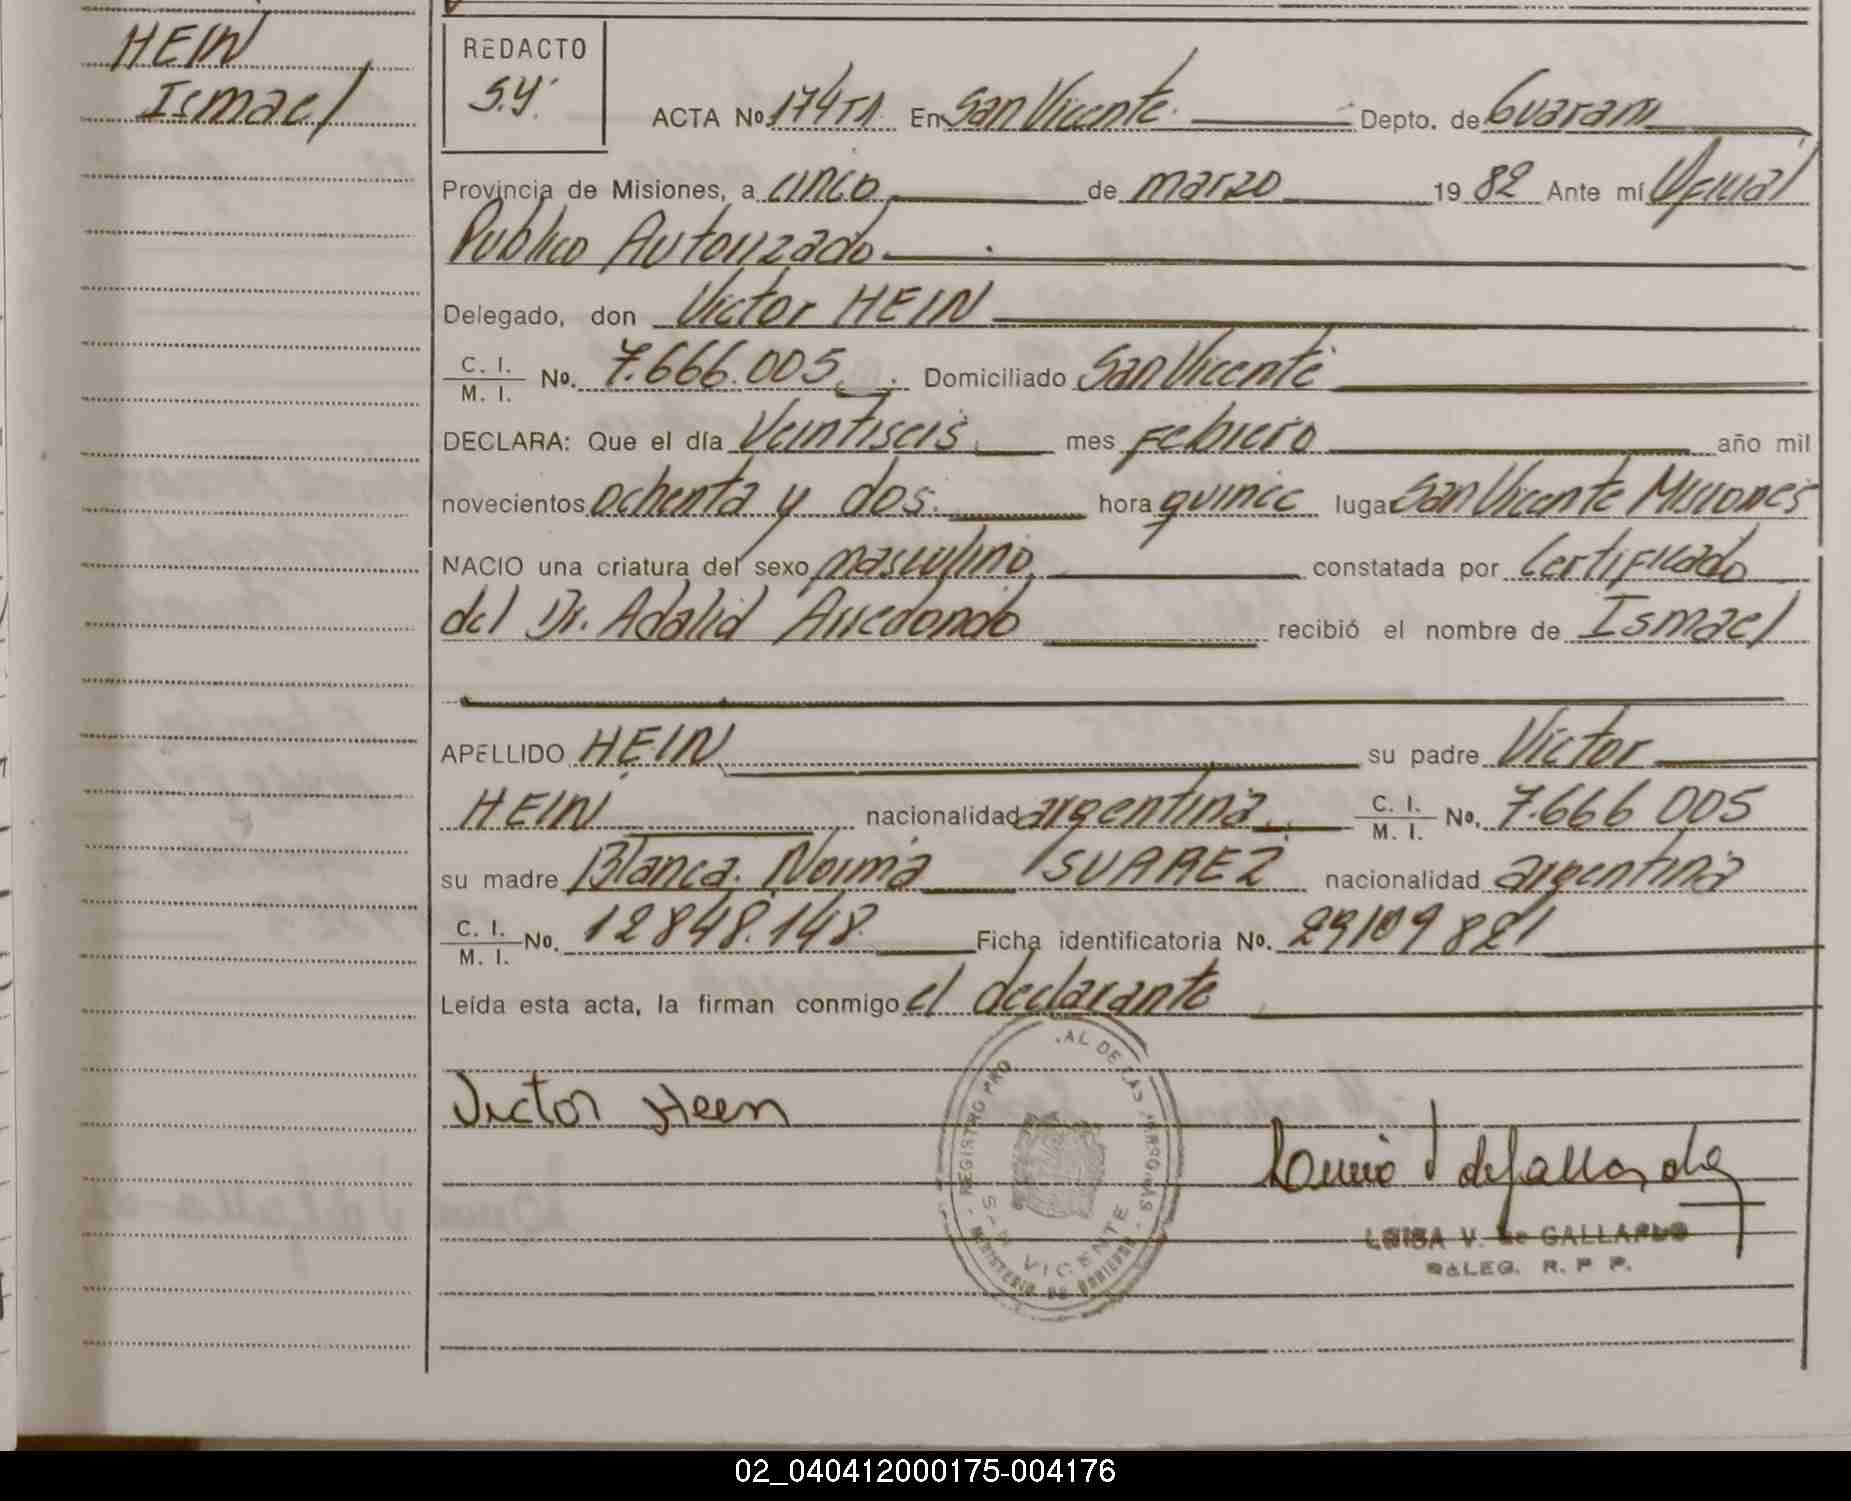 HEIN
Ismael
REDACTO
S.Y.
ACTA No 174 TA En San Vicente. Depto. de Guaraní
Provincia de Misiones, a cinco de marzo 19 82 Ante mí Oficial
Publico Autorizado
Delegado, don Victor HEIN
C. I.
M. I. No. 7.666.005 Domiciliado San Vicente
DECLARA: Que el día Veintiseis mes Febrero año mil
novecientos ochenta y dos. hora quince lugar San Vicente Misiones
NACIO una criatura del sexo masculino constatada por Certificado
del Dr. Adalid Arredondo recibió el nombre de Ismael
APELLIDO HEIN su padre Victor
HEIN nacionalidad argentina C. I.
M. I. No. 7.666 005
su madre Blanca Norma SUAREZ nacionalidad argentina
C. I.
M. I. No. 12848.148. Ficha identificatoria No. 29109821
Leída esta acta, la firman conmigo el declarante
Victor Heen
REGISTRO PRO AL DE LAS PERSONAS
SAN VICENTE
MINISTERIO DE GOBIERNO
LUISA V. de GALLARDO
DELEG. R. P. P.
02_040412000175-004176